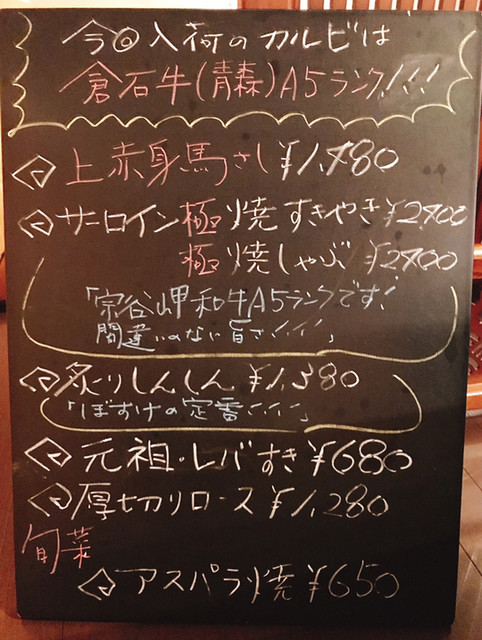 今回入荷のカルビは
倉石牛(青森)A5ランク!!!
上赤身馬さし¥1,480
サーロイン極焼すきやき¥2900
極焼しゃぶ¥2900
「宗谷岬和牛A5ランクです!
間違いのない旨さ!!!」
炙りしんしん¥1,380
「ぼすけの定番!!!」
元祖・レバすき¥680
厚切りロース¥1,280
旬菜
アスパラ焼¥650